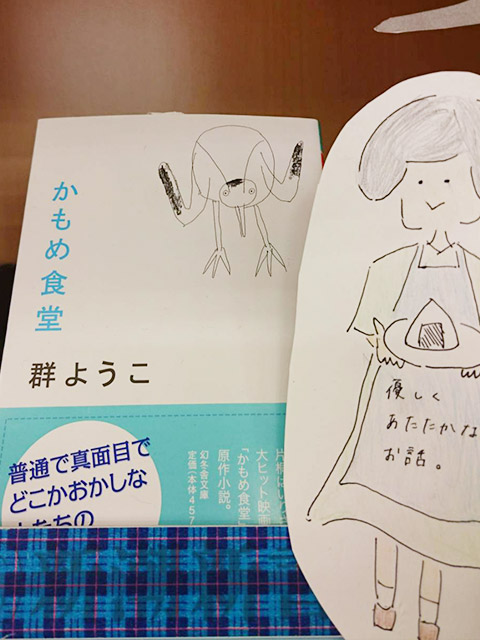 かもめ食堂
群ようこ
普通で真面目で
どこかおかしな
大ヒット映画
「かもめ食堂」
原作小説。
幻冬舎文庫
定価(本体457
優しく
あたたかな
お話。